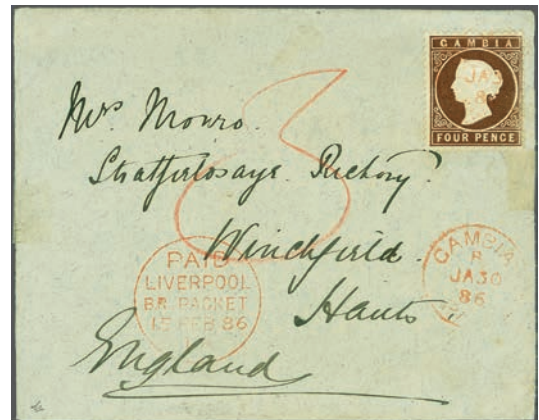 GAMBIA
JA3
8
FOUR PENCE
Mrs Monro.
Stratfieldsaye Rectory.
Winchfield.
Hants
England
3
PAID
LIVERPOOL
BR PACKET
15 FEB 86
GAMBIA
JA30
86